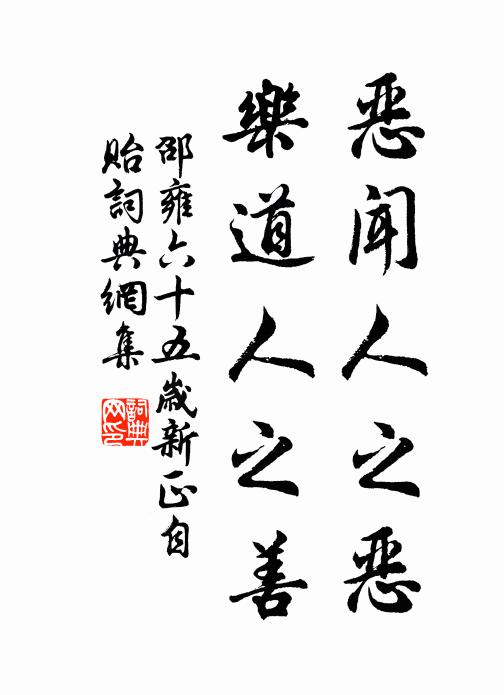 惡聞人之惡
樂道人之善
邵雍六十五歲新正自
貽詞典網集
詞典
网印